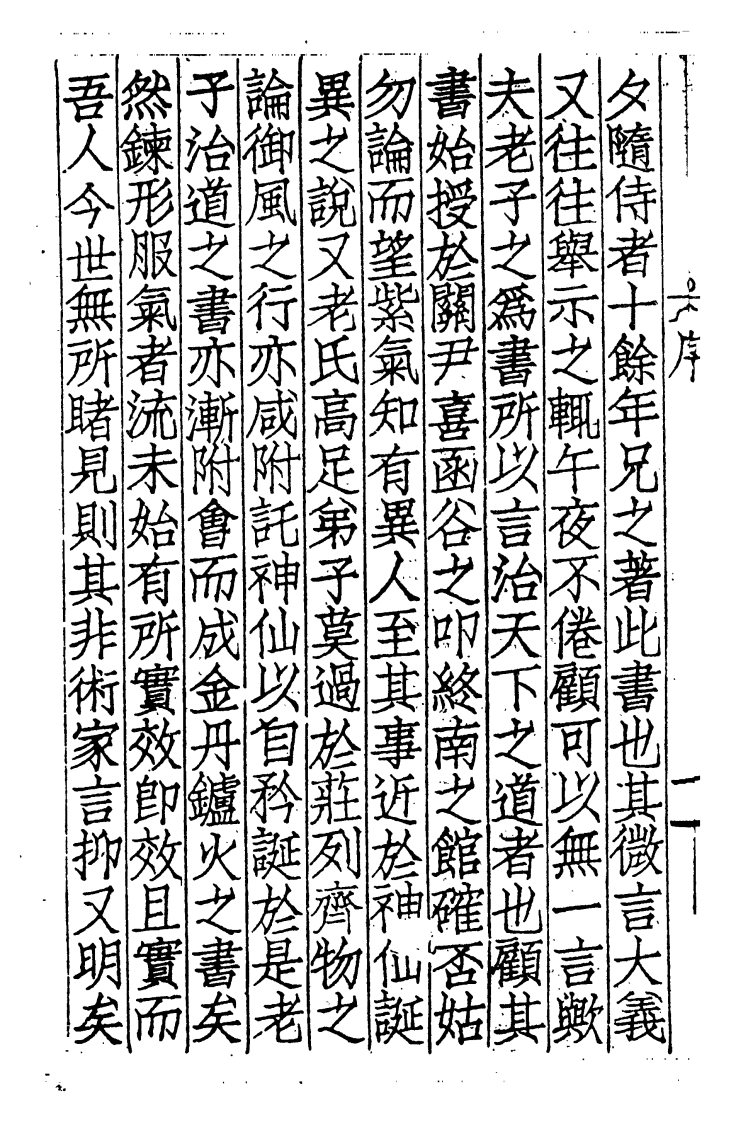 夕隨侍者十餘年兄之著此書也其微言大義
又往往舉示之輒午夜不倦顧可以無一言歟
夫老子之爲書所以言治天下之道者也顧其
書始授於關尹喜函谷之叩終南之館確否姑
勿論而望紫氣知有異人至其事近於神仙誕
異之說又老氏高足弟子莫過於莊列齊物之
論御風之行亦咸附託神仙以自矜誕於是老
子治道之書亦漸附會而成金丹鑪火之書矣
然鍊形服氣者流未始有所實效卽效且實而
吾人今世無所睹見則其非術家言抑又明矣
序
一